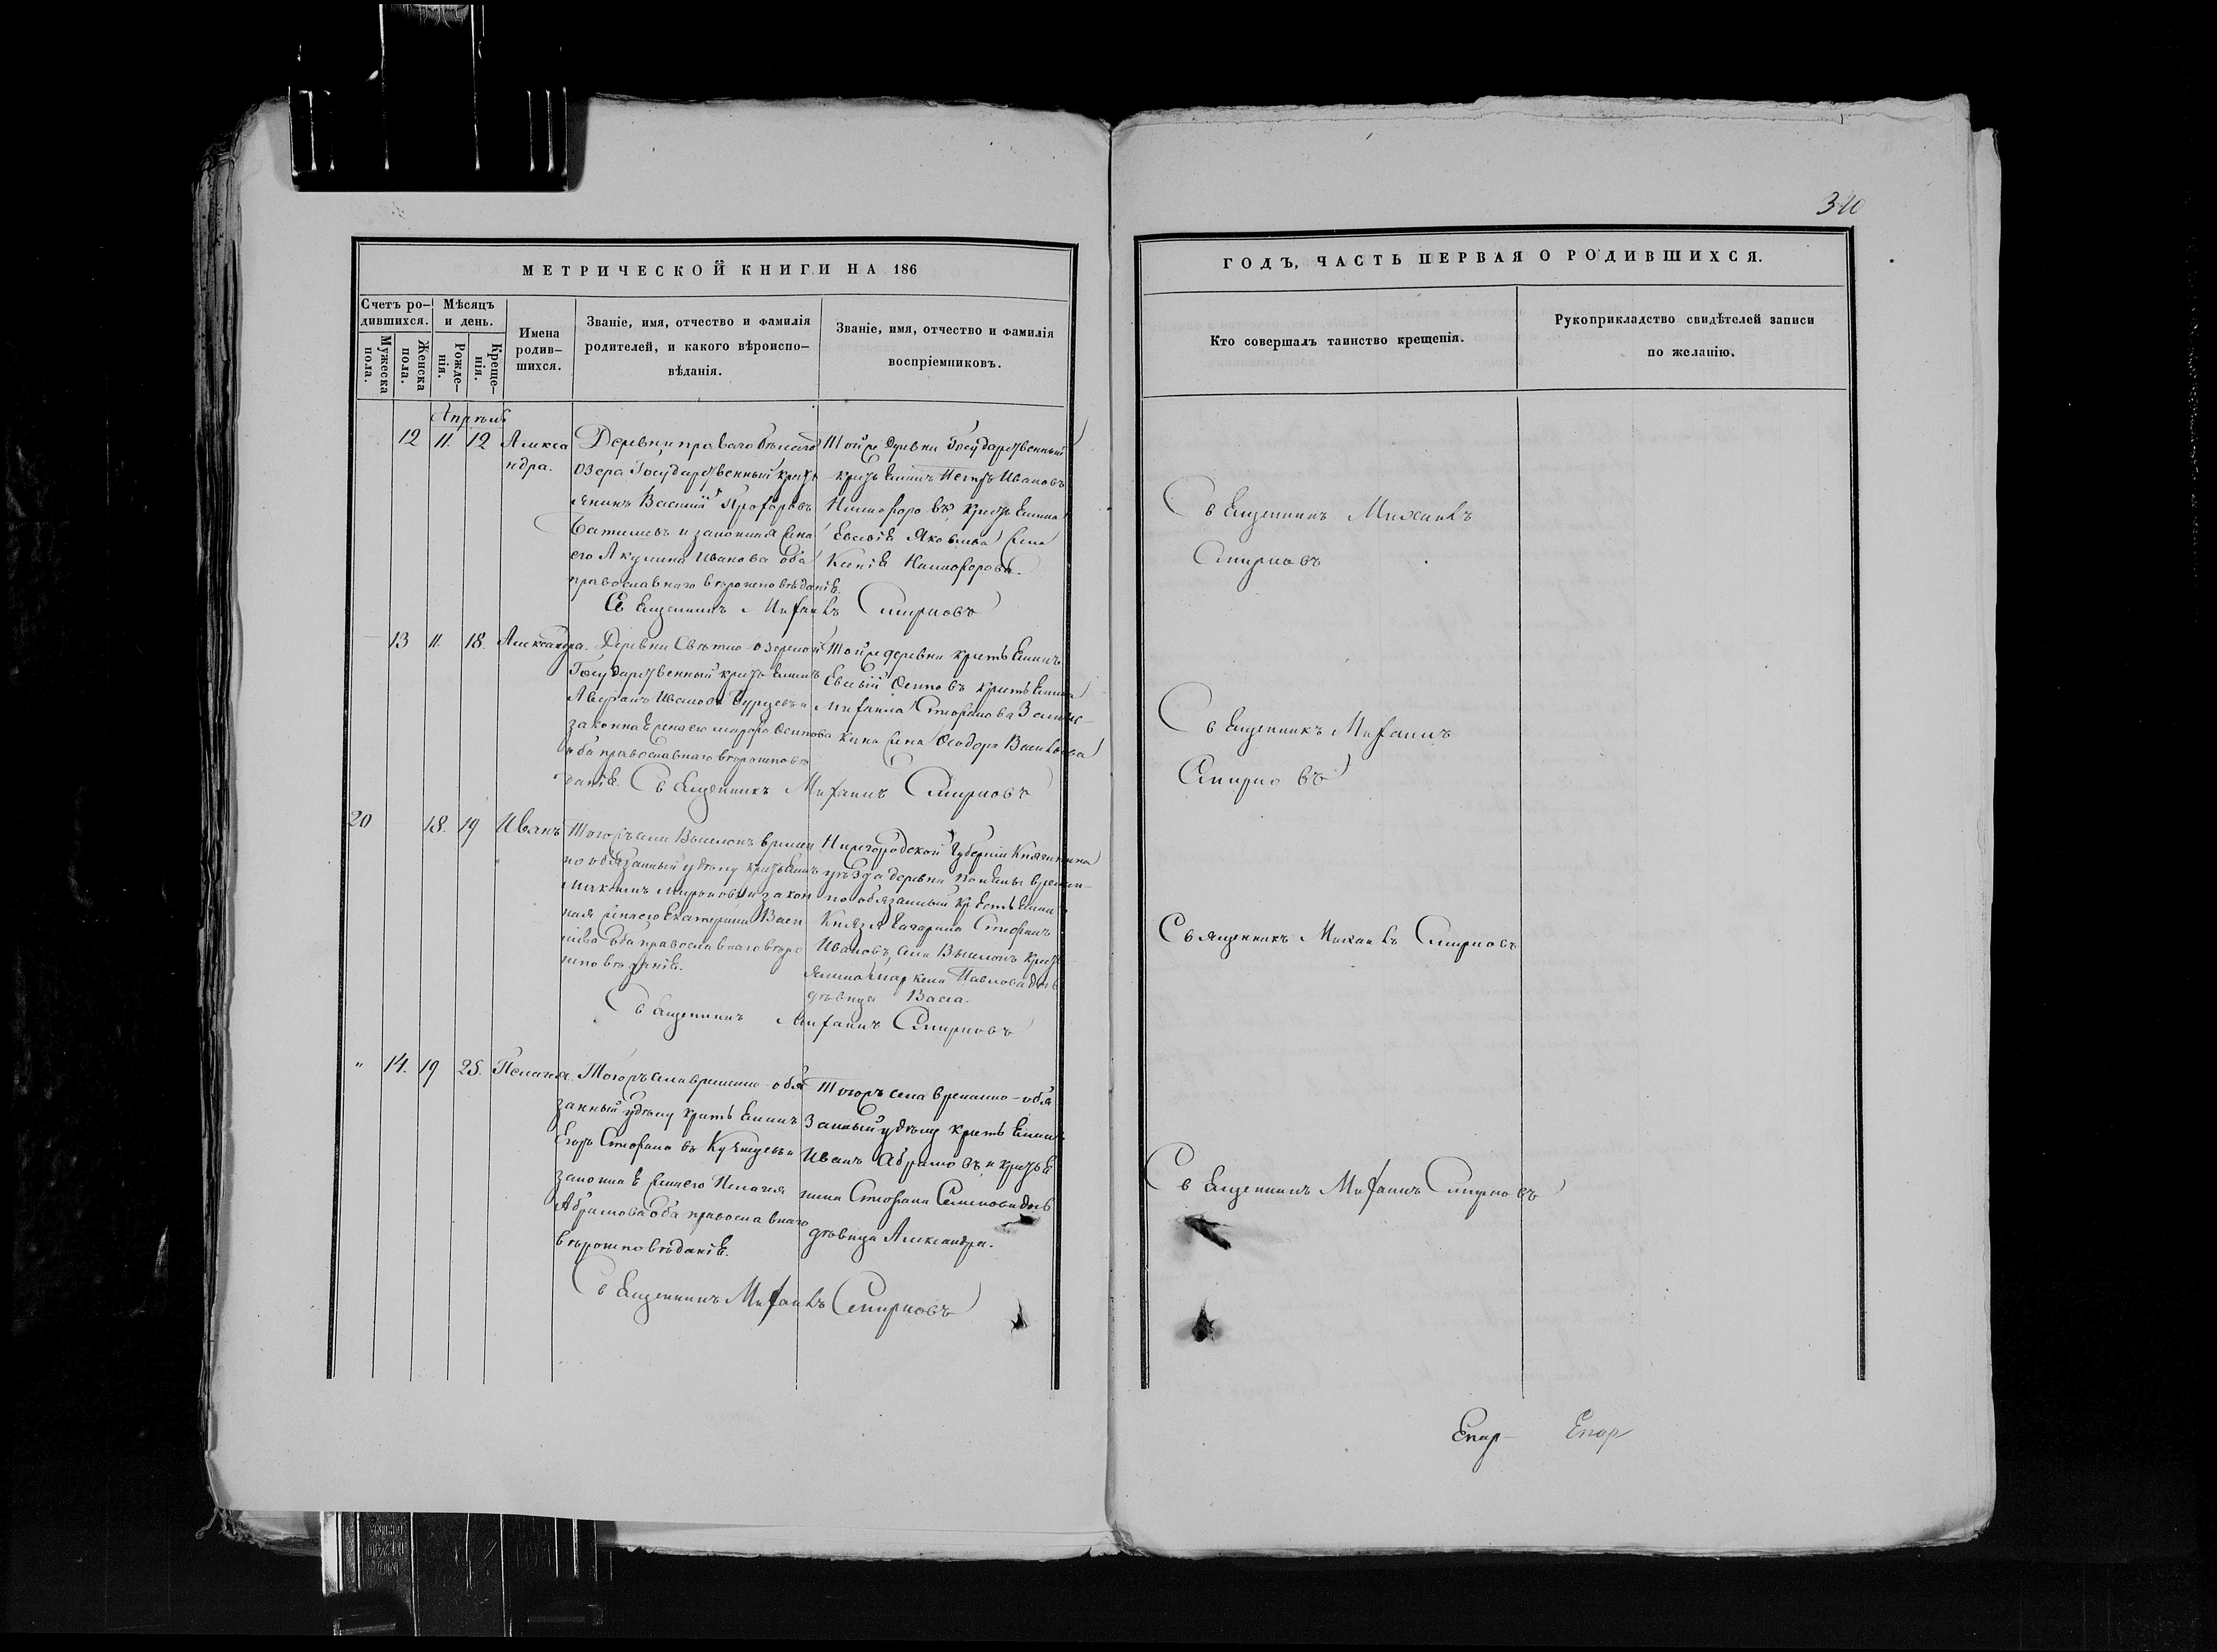 340
МЕТРИЧЕСКОЙ КНИГИ НА 186
ГОДЪ, ЧАСТЬ ПЕРВАЯ О РОДИВШИХСЯ.
Счетъ ро-
дившихся.
Мужеска
пола.
Женска
пола.
Мѣсяцъ
и день.
Рожде-
нія.
Креще-
нія.
Имена
родив-
шихся.
Званіе, имя, отчество и фамилія
родителей, и какого вѣроиспо-
вѣданія.
Званіе, имя, отчество и фамилія
воспріемниковъ.
Кто совершалъ таинство крещенія.
Рукоприкладство свидѣтелей записи
по желанію.
Апрѣль
12 11. 12 Алекса
ндра.
Деревни праваго бѣлаго
озера Государственный крест
янинъ Василій
и законная жена
его Акулина Иванова оба
православнаго вѣроисповѣданія.
Священникъ Михаилъ Смирновъ
Той же деревни Государственный
крестьянинъ Петръ Ивановъ
Никифоровъ, крестьянина
Евсевія Яковлева жена
Ксенія Никифорова.
Священникъ Михаилъ
Смирновъ
13 11. 18. Александра.
Деревни Свѣтло-озерской
Государственный крестьянинъ
Иванов
законная жена его Осипова
оба православнаго вѣроисповѣ
данія. Священникъ Михаилъ Смирновъ
Той же деревни крестьянинъ
Евсевій Осиповъ крестьянина
Михаила Стефанова
кина жена Ѳеодора Васильева
Священникъ Михаилъ
Смирновъ
20 18. 19 Иванъ
Тогожъ села времен
но обязанный удѣлу крестьянинъ
Максимъ Мироновъ и закон
ная жена его Екатерина Васи
льева оба православнаго вѣро
исповѣданія.
Священникъ Михаилъ Смирновъ
Нижегородской Губерніи Княгинина
уѣзда деревни времен-
но обязанный крестьянинъ
Князя Гагарина Стефанъ
Ивановъ, села крест
янина Маркела Павлова дочь
дѣвица Васса.
Священникъ Михаилъ Смирновъ
" 14. 19 25. Пелагея.
Тогожъ села временно-обя
занный удѣлу крестьянинъ
Егоръ Стефановъ и
законная жена его Пелагея
Абрамова оба православнаго
вѣроисповѣданія.
Священникъ Михаилъ Смирновъ
Тогожъ села временно-обя
занный удѣлу крестьянинъ
Иванъ Абрамовъ, и крестья
нина Стефана Семенова дочь
дѣвица Александра.
Священникъ Михаилъ Смирновъ
Епар- Епар